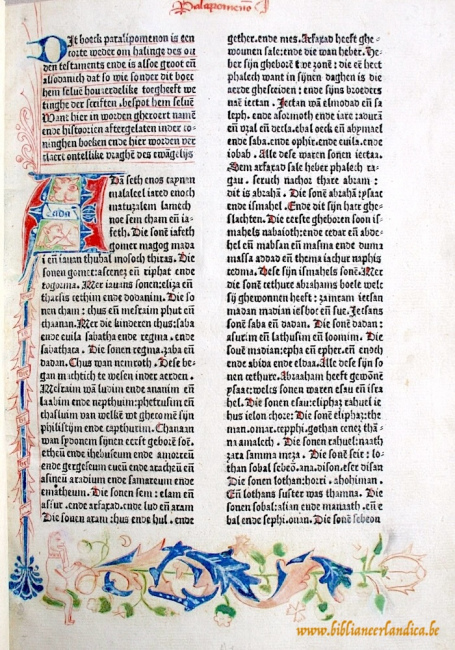 Paralipomenon I
Dit boeck paralipomenon is een
corte weder om halinge des ou
den testaments ende is alsoe groot en
alsodanich dat so wie sonder dit boec
hem seluen houaerdelike toegheeft we
tinghe der scriften, bespot hem selue
Want hier in worden gheroert name
ende historien aftergelaten inder co-
ninghen boeken ende hier worden ver
claert ontellike vraghe des ewagelijs
ADā seth enos caynan
malaleel iared enoch
matuzalem lamech
noe sem cham en ia-
feth. Die sone iafeth
gomer magog mada
i en iauan thubal mosoth thiras. Die
sonen gomer: ascenez en riphat ende
togorma. Mer iauans sonen: eliza en
tharsis cethim ende dodanim. Die so
nen cham: chus en mesraim phut en
chanaan. Mer die kinderen chus: saba
ende euila sabatha ende regma. ende
sabathaca. Die sonen regma. saba en
dadan. Chus wan nemroth. Dese be-
gan michtich te wesen inder aerden.
Mesraim wan ludim ende anamim en
laabim ende nepthuim: phetrusim en
chasluim van welke we ghecome sijn
philistijm ende capthurim. Chanaan
wan sydonem sijnen eerste gebore soe.
etheu ende ihebuseum ende amorreu
ende gergeseum eueu ende aracheu en
asineu aradium ende samareum ende
ematheum. Die sonen sem: elam en
assur. ende arfaxad. ende lud en aram
Die sonen aram: hus ende hul. ende
gether. ende mes. Arfaxad heeft ghe-
wounen sale: ende die wan heber. He-
ber sijn ghebore twe zone: die en heet
phalech want in sijnen daghen is die
aerde ghescheiden: ende sijns broeders
nae iectan. Iectan wan elmodad en sa
leph. ende asormoth ende iare: adura
en uzal en decla. ebal oeck en abymael
ende saba. ende ophir. ende euila. ende
iobab. Alle dese waren sonen iectan.
Sem arfaxad sale heber phalech ra-
gau. seruch nachor thare abram:
dit is abraha. Die sone abraha: ysaac
ende ismahel. Ende dit sijn haer ghe-
slachten. Die eerste gheboren soon is-
mahels nabaioth: ende cedar en abde-
hel en mabsan en masma ende duma
massa addad en thema iachur naphis
cedma. Dese sijn ismahels sone. Mer
die sone cethure abrahams boele welc
sij ghewonnen heeft: zamram iecsan
madan madian iesboc en sue. Iecsans
sone saba en dadan. Die sone dadan:
asurim en lathusim en loomim. Die
sone madian: epha en epher. en enoch
ende abida ende eldaa. Alle dese sijn so
nen cethure. Abraham heeft gewone
ysaac: welcs sonen waren esau en isra
hel. Die sonen esau: eliphaz rahuel ie
hus ielon chore: Die sone eliphaz: the
man. omar. sepphi. gothan cenez tha-
na amalech. Die sonen rahuel: naath
zara samma meza. Die sone seir: lo-
than sobal sebeo. ana. dison. eser disan
Die sonen lothan: horri. ahohiman.
En lothans suster was thamna. Die
sonen sobal: alian ende manaath. en e
bal ende sephi. onan. Die sone sebeon
www.biblianeerlandica.be